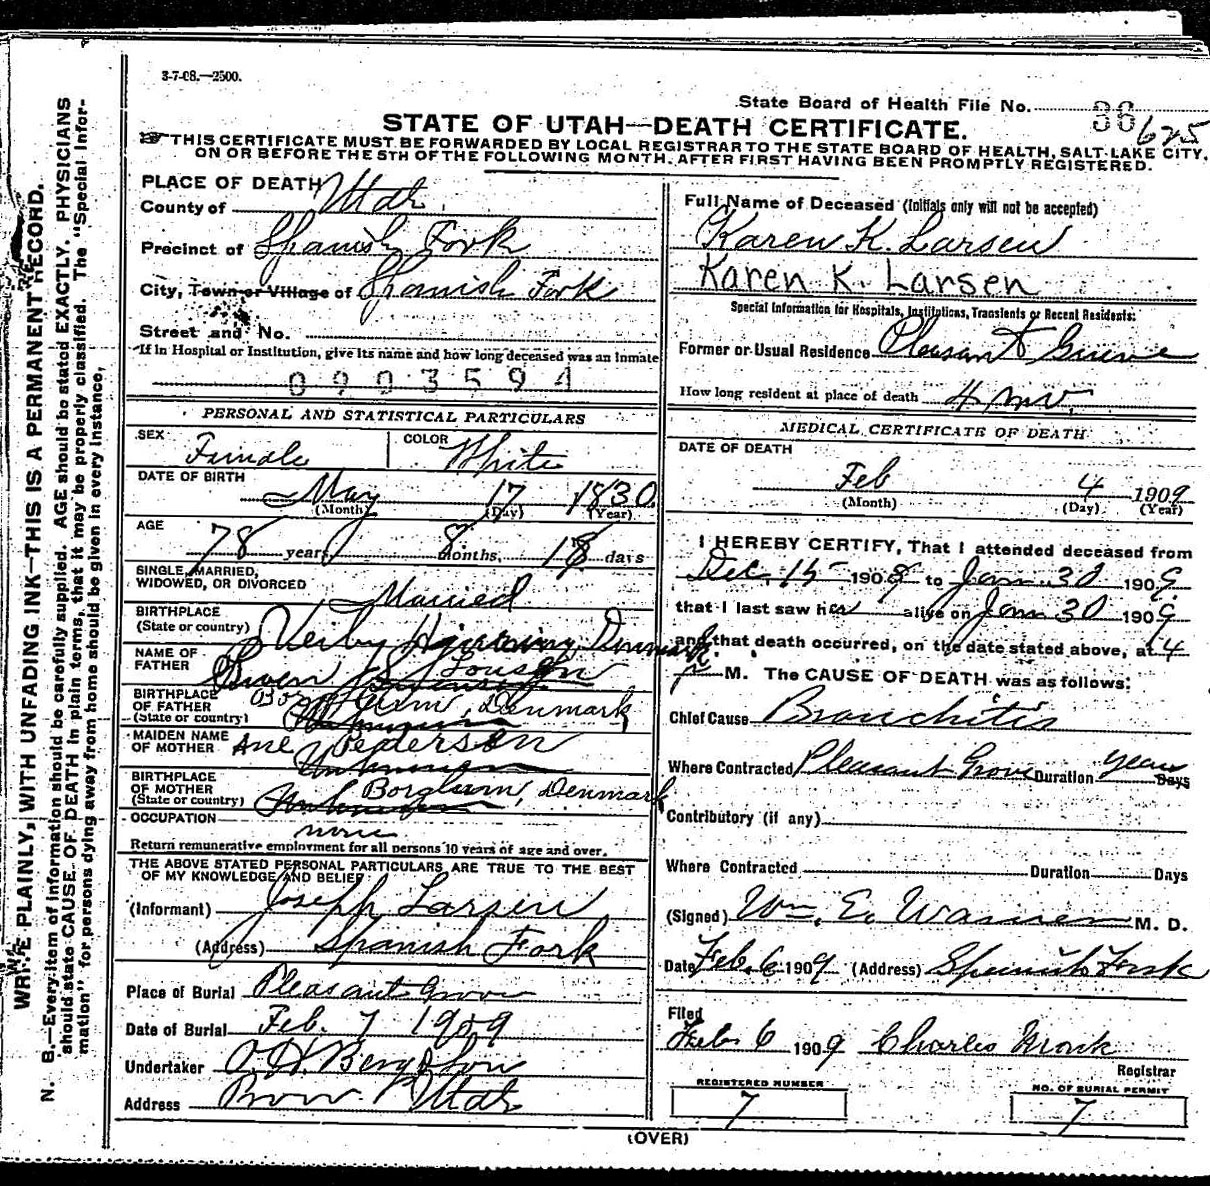 3-7-08.—2500.
State Board of Health File No. 36 625
STATE OF UTAH—DEATH CERTIFICATE.
THIS CERTIFICATE MUST BE FORWARDED BY LOCAL REGISTRAR TO THE STATE BOARD OF HEALTH, SALT LAKE CITY,
ON OR BEFORE THE 5TH OF THE FOLLOWING MONTH. AFTER FIRST HAVING BEEN PROMPTLY REGISTERED.
WRITE PLAINLY, WITH UNFADING INK—THIS IS A PERMANENT RECORD.
N. B.—Every item of information should be carefully supplied. AGE should be stated EXACTLY. PHYSICIANS
should state CAUSE OF DEATH in plain terms, that it may be properly classified. The "Special Infor-
mation" for persons dying away from home should be given in every instance.
PLACE OF DEATH
County of Utah
Precinct of Spanish Fork
City, Town or Village of Spanish Fork
Street and No.
If in Hospital or Institution, give its name and how long deceased was an inmate
0903594
PERSONAL AND STATISTICAL PARTICULARS
SEX Female COLOR White
DATE OF BIRTH
May 17 1830
(Month) (Day) (Year)
AGE
78 years 8 months, 18 days
SINGLE, MARRIED,
WIDOWED, OR DIVORCED Married
BIRTHPLACE
(State or country) Denmark
NAME OF
FATHER
BIRTHPLACE
OF FATHER
(State or country) Borglum, Denmark
MAIDEN NAME
OF MOTHER Ane Pedersen
Unknown
BIRTHPLACE
OF MOTHER
(State or country) Borglum, Denmark
Unknown
OCCUPATION
none
Return remunerative employment for all persons 10 years of age and over.
THE ABOVE STATED PERSONAL PARTICULARS ARE TRUE TO THE BEST
OF MY KNOWLEDGE AND BELIEF
(Informant) Joseph Larsen
(Address) Spanish Fork
Place of Burial Pleasant Grove
Date of Burial Feb. 7 1909
Undertaker O. H. Berg & Son
Address Provo Utah
Full Name of Deceased (Initials only will not be accepted)
Karen K. Larsen
Karen K. Larsen
Special Information for Hospitals, Institutions, Transients or Recent Residents:
Former or Usual Residence Pleasant Grove
How long resident at place of death 4 mo.
MEDICAL CERTIFICATE OF DEATH
DATE OF DEATH
Feb 4 1909
(Month) (Day) (Year)
I HEREBY CERTIFY, That I attended deceased from
Dec. 15 1908 to Jan. 30 1909
that I last saw her alive on Jan 30 1909
and that death occurred, on the date stated above, at 4
p M. The CAUSE OF DEATH was as follows:
Chief Cause Bronchitis
Where Contracted Pleasant Grove Duration years Days
Contributory (if any)
Where Contracted Duration Days
(Signed) Wm. E. Warner M. D.
Date Feb. 6 1909 (Address) Spanish Fork
Filed
Feb 6 1909 Charles Monk
Registrar
REGISTERED NUMBER
7
NO. OF BURIAL PERMIT
7
(OVER)